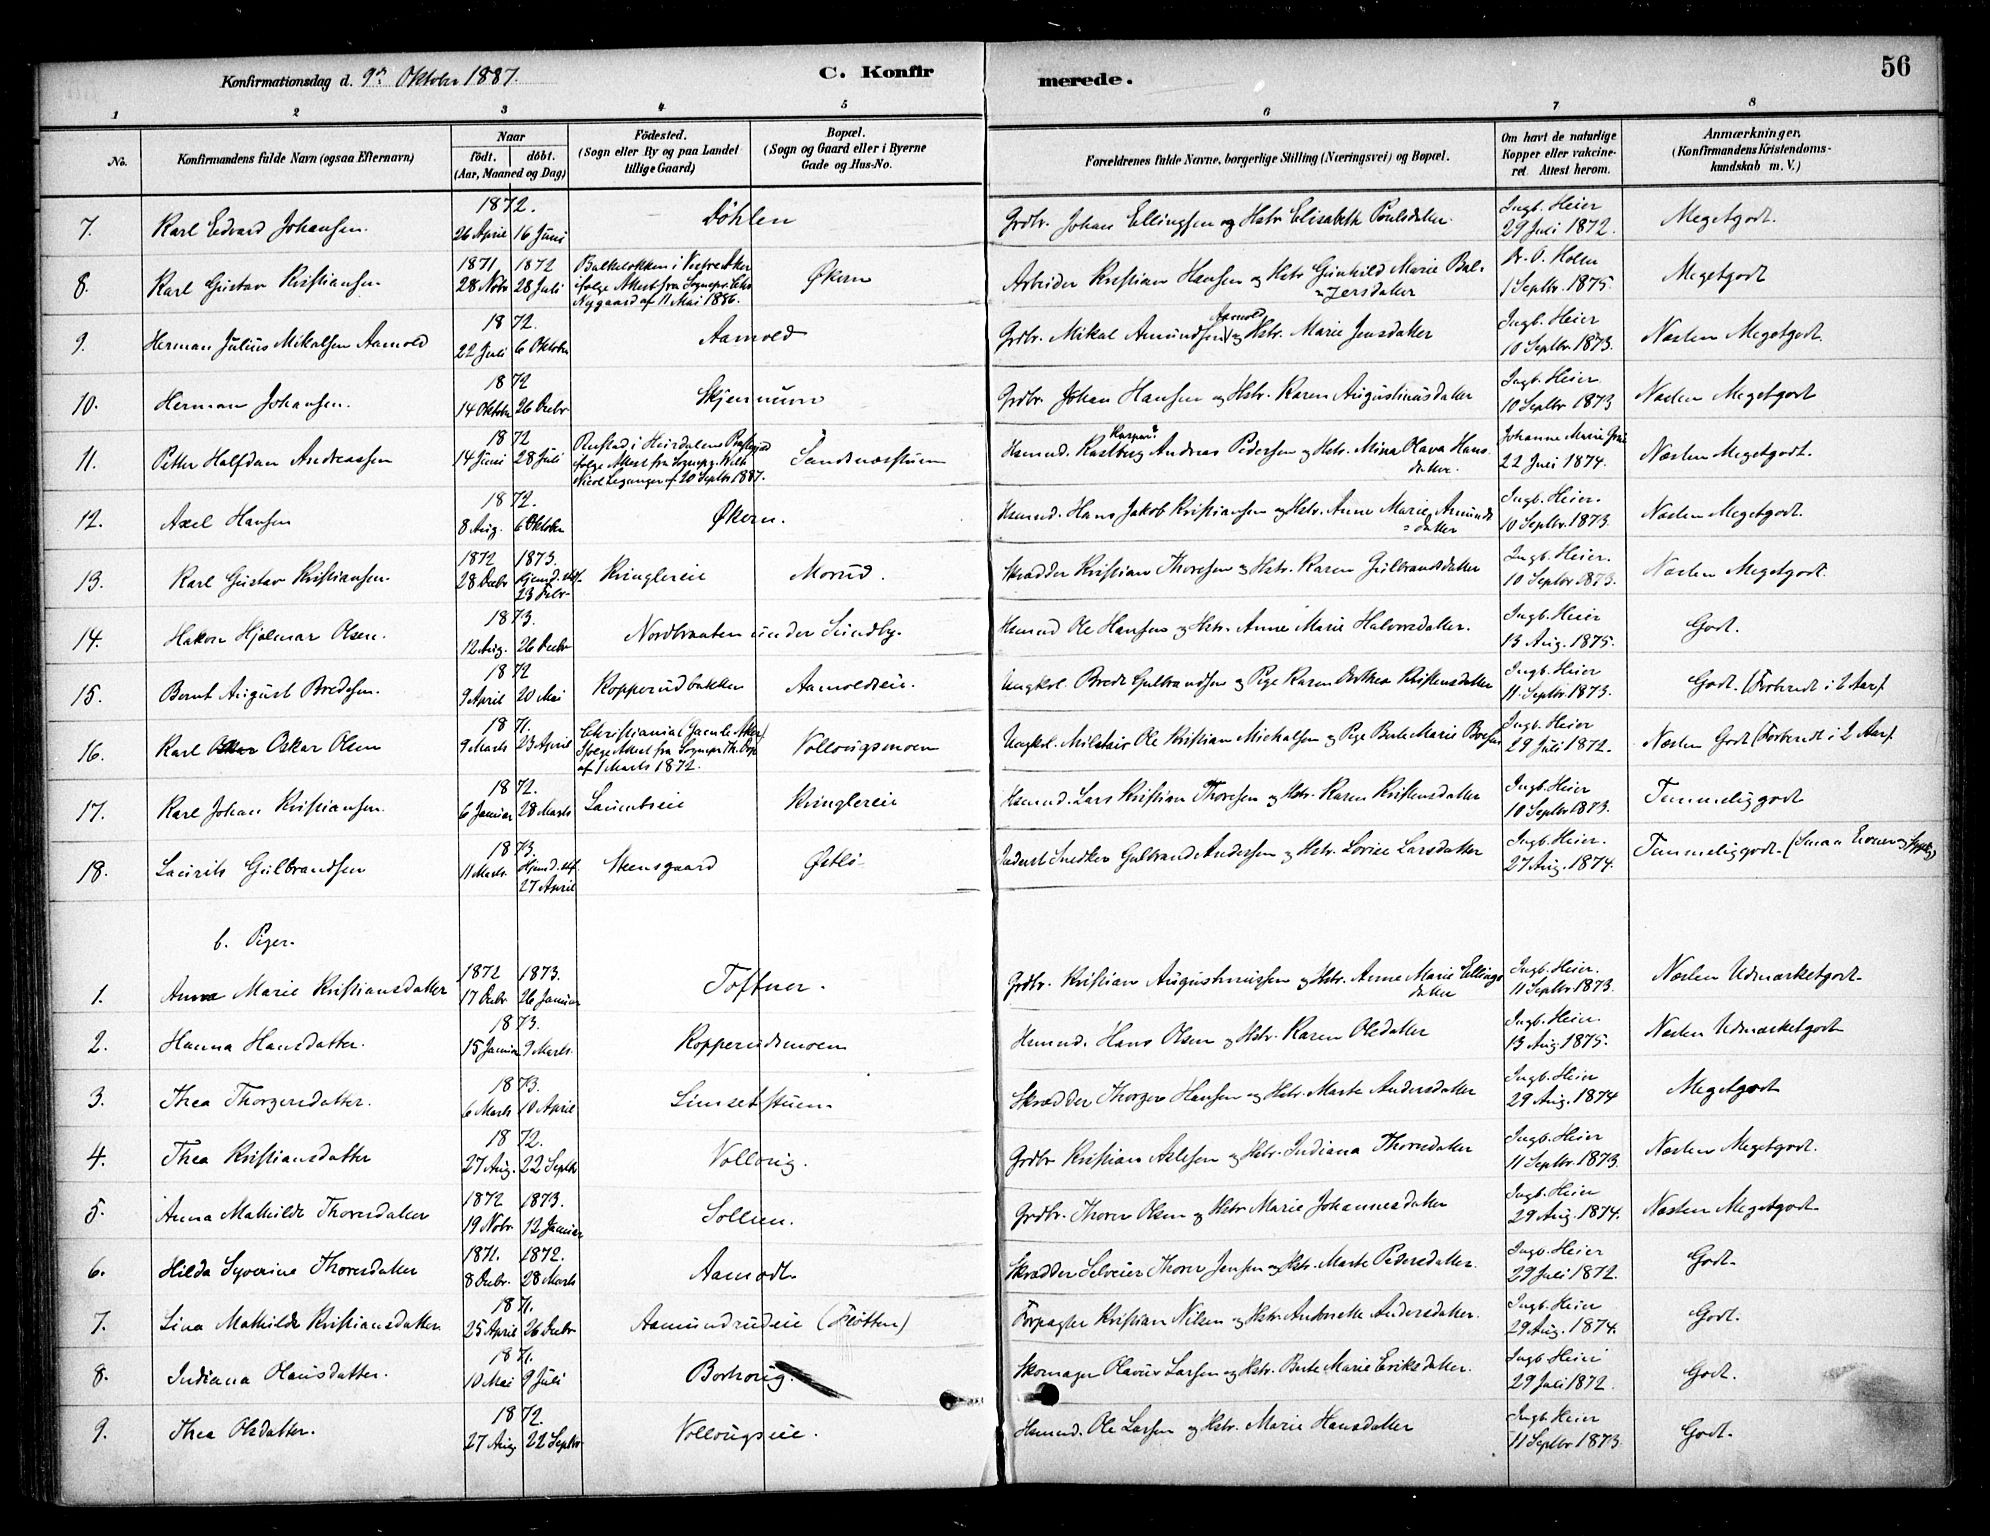 Konfirmationsdag d. 9de Oktober 1887.
C. Konfirmerede.
56
1 2 3 4 5 6 7 8
No.
Konfirmandens fulde Navn (ogsaa Efternavn)
Naar
født. døbt.
(Aar, Maaned og Dag)
Fødested.
(Sogn eller By og paa Landet
tillige Gaard)
Bopæl.
(Sogn og Gaard eller i Byerne
Gade og Hus-No.
Forældrenes fulde Navne, borgerlige Stilling (Næringsvei) og Bopæl.
Om havt de naturlige
Kopper eller vakcine-
ret. Attest herom.
Anmærkninger.
(Konfirmandens Kristendoms-
kundskab m. V.)
7. Karl Edvard Johansen. 1872. 26 April 16 Juni Döhlen Grdbr. Johan Ellingsen og Hstr. Elisabeth Poulsdatter. Ingb. Heier 29 Juli 1872. Megetgodt.
8. Karl Gustav Kristiansen 1871 28 Nobr 1872 28 Juli Balkeløkken i Vestre Aker ifølge Attest fra Sognepr. Nygaard af 11 Mai 1886. Økern Arbeider Kristian Hansen og Hstr Gunhild Marie Bal-
zersdatter Dr. O. Holm 1 Septbr. 1875. Megetgodt
9. Herman Julius Mikalsen Aamold 1872. 22 Juli 6 Oktober Aamold Grdbr. Mikal Amundsen Aamold og Hstr. Marie Jensdatter Ingb. Heier 10 Septbr. 1873. Næsten Megetgodt.
10. Herman Johansen. 1872 14 Oktobr 26 Decbr Skjennum Grdbr. Johan Hansen og Hstr. Karen Augustinusdatter Ingb. Heier 10 Septbr 1873 Næsten Megetgodt
11. Petter Halfdan Andreassen 1872 14 Juni 28 Juli ifølge Attest fra Sognepr. af 20 Septbr 1887. Sandnæsstuen Hsmnd. Andreas Pedersen og Hstr. Mina Olava Hans-
datter. Johanne Marie 22 Juli 1874. Næsten Megetgodt.
12. Axel Hansen 1872. 8 Aug. 6 Oktober Økern. Hsmnd. Hans Jakob Kristiansen og Hstr. Anne Marie Amunds-
datter Ingb. Heier. 10 Septbr. 1873. Næsten Megetgodt.
13. Karl Gustav Kristiansen. 1872 28 Decbr 1873. Hjemd. stf. 23 Febr. Kringlereie Morud. Skrædder Kristian Thoresen og Hstr. Karen Gulbrandsdatter Ingb. Heier. 10 Septbr 1873. Næsten Megetgodt.
14. Hakon Hjalmar Olsen. 1873. 12 Aug. 26 Decbr Nordbraaten under Sundby. Hsmnd Ole Hansen og Hstr. Anne Marie Halvorsdatter. Ingb. Heier 13 Aug. 1875. Godt.
15. Bernt August Bredesen. 1872 9 April 20 Mai Kopperudbakken Aamoldseie. Ungkol. Brede Gulbrandsen og Pige Karen Dorthea Kristensdatter Ingb. Heier 11 Septbr. 1873. Godt. (Forberedt i 2 Aar).
16. Karl Oskar Olsen 1871. 9 Marts 23 April Christiania (Gamle Aker) ifølge Attest fra Sognepr. af 1 Marts 1872. Vollaugsmoen Ungkol. Militair Ole Kristian Mickalsen og Pige Berte Marie Ingb. Heier 29 Juli 1872. Næsten Godt (Forberedt i 2 Aar).
17. Karl Johan Kristiansen. 1872. 6 Januar 28 Marts Laumbseie Kringlereie Hsmnd. Lars Kristian Thoresen og Hstr. Karen Kristensdatter Ingb. Heier 10 Septbr 1873. Temmelig godt
18. Laurits Gulbrandsen 1873. 11 Marts Hjemd. stf. 27 April Steensgaard Østli Inderst Snedker Gulbrand Andersen og Hstr. Lovise Larsdatter Ingb. Heier. 27 Aug. 1874. Temmelig godt. (Smaa Evner og
b. Piger.
1. Anna Marie Kristiansdatter 1872 17 Decbr 1873. 26 Januar Toftner. Grdbr. Kristian Augustinussen og Hstr. Anne Marie Ellings-
datter Ingb. Heier. 11 Septbr 1873. Næsten Udmærketgodt.
2. Hanna Hansdatter. 1873. 15 Januar 9 Marts. Kopperudsmoen Hsmnd. Hans Olsen og Hstr. Karen Olsdatter Ingb. Heier. 13 Aug. 1875. Næsten Udmærketgodt
3. Thea Thorgersdatter. 1873. 6 Marts 10 April Limsetstuen. Skrædder Thorger Hansen og Hstr. Marte Andersdatter Ingb. Heier 29 Aug. 1874 Megetgodt
4. Thea Kristiansdatter 1872. 27 Aug. 22 Septbr Vollaug. Grdbr Kristian Axelsen og Hstr. Indiana Thoresdatter Ingb. Heier 11 Septbr. 1873. Næsten Megetgodt.
5. Anna Mathilde Thoresdatter 1872 19 Nobr. 1873. 12 Januar Sollien. Grdbr. Thorer Olsen og Hstr Marie Johannesdatter Ingb. Heier 29 Aug. 1874. Næsten Megetgodt.
6. Hilda Syverine Thoresdatter 1871. 8 Decbr. 1872. 28 Marts Aamodt. Skrædder Selveier Thorer Jensen og Hstr. Marte Pedersdatter. Ingb. Heier 29 Juli 1872. Godt.
7. Lina Mathilde Kristiansdatter. 1871. 25 April 26 Decbr Aamundrudeie (Fløtten) Forpagter Kristian Nilsen og Hstr. Andersdatter. Ingb. Heier 29 Aug. 1874. Godt.
8. Indiana Olausdatter. 1871. 10 Mai 9 Juli Borhaug. Skomager Olaus Larsen og Hstr. Berte Marie Eriksdatter. Ingb Heier 29 Juli 1872. Godt.
9. Thea Olsdatter. 1872. 27 Aug 22 Septbr Vollaugseie. Hsmnd. Ole Larsen og Hstr. Marie Hansdatter Ingb. Heier 11 Septbr 1873. Godt.